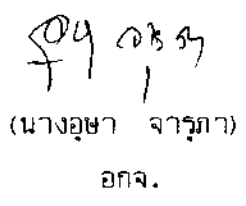 (นางอุษา จารุภา)
อกจ.